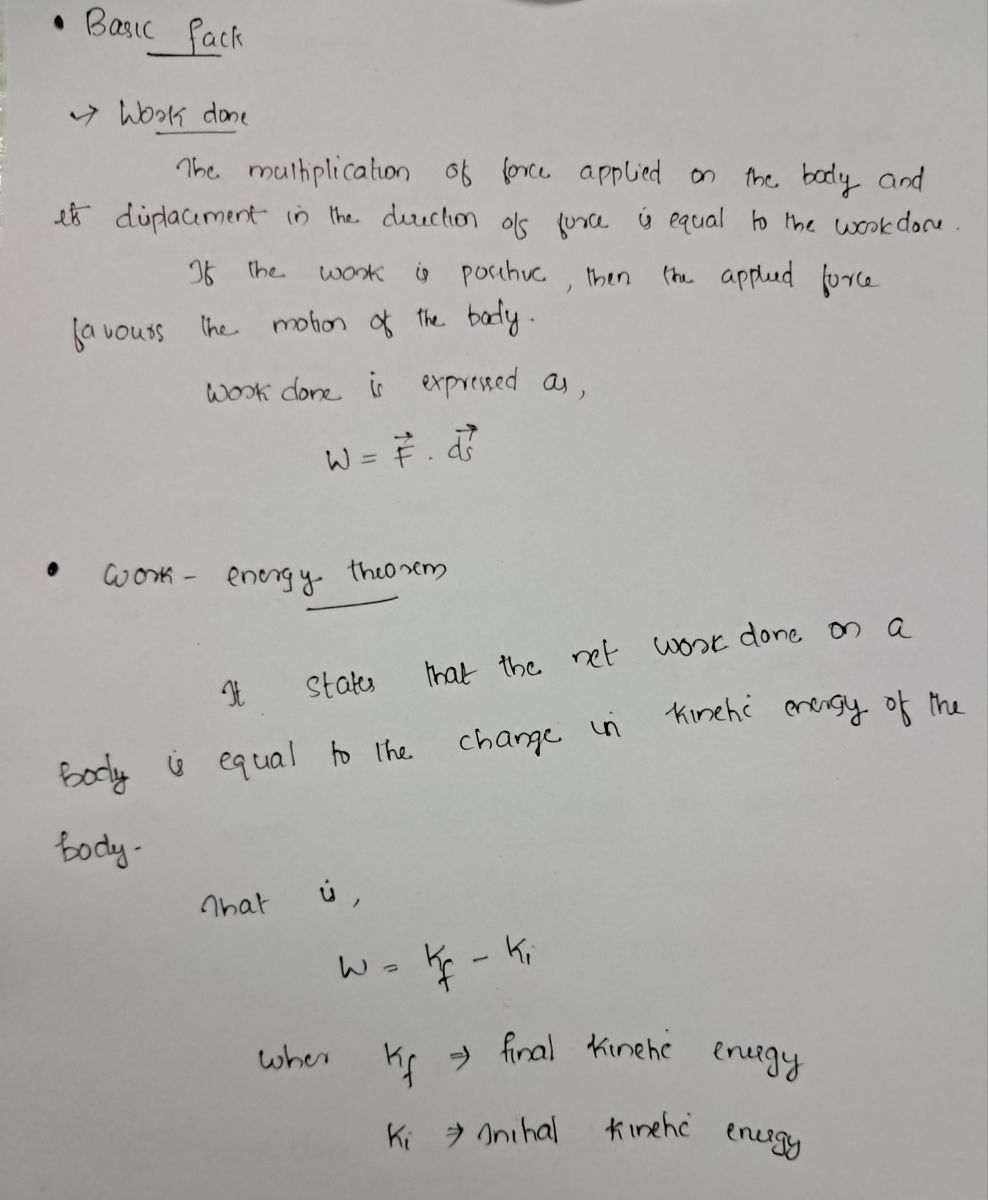 • Basic Pack
→ Work done
The multiplication of force applied on the body and
its displacement in the direction of force is equal to the workdone.
If the work is positive, then the applied force
favours the motion of the body.
Work done is expressed as,
W = F⃗ . ds⃗
• Work - energy theorem
It states that the net work done on a
body is equal to the change in kinetic energy of the
body.
That is,
W = Kf - Ki
wher Kf ⇒ final kinetic energy
Ki ⇒ Initial kinetic energy